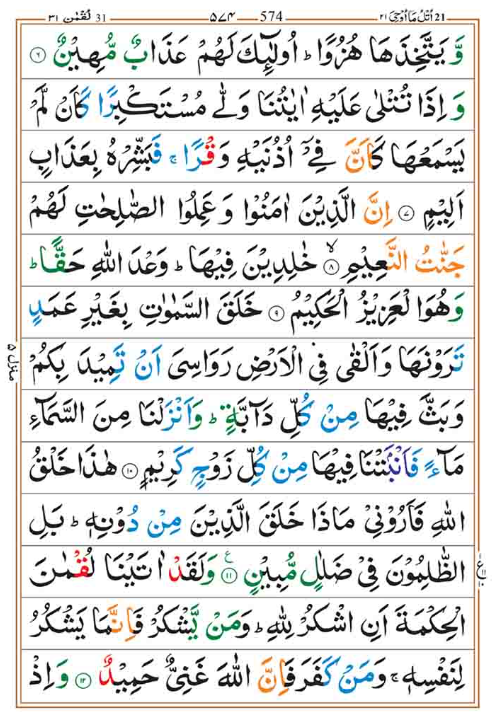 21 اُتۡلُ مَاۤ اُوۡحِیَ ٢١ 574 ۵۷۴ 31 لُقۡمٰن ٣١
وَّ یَتَّخِذَهَا هُزُوًا ؕ اُولٰٓئِكَ لَهُمۡ عَذَابٌ مُّهِیۡنٌ ۶
وَ اِذَا تُتۡلٰی عَلَیۡهِ اٰیٰتُنَا وَلّٰی مُسۡتَكۡبِرًا كَاَنۡ لَّمۡ
یَسۡمَعۡهَا كَاَنَّ فِیۡۤ اُذُنَیۡهِ وَقۡرًا ۚ فَبَشِّرۡهُ بِعَذَابٍ
اَلِیۡمٍ ۷ اِنَّ الَّذِیۡنَ اٰمَنُوۡا وَ عَمِلُوا الصّٰلِحٰتِ لَهُمۡ
جَنّٰتُ النَّعِیۡمِ ۙ ۸ خٰلِدِیۡنَ فِیۡهَا ؕ وَعۡدَ اللّٰهِ حَقًّا ؕ
وَهُوَ الۡعَزِیۡزُ الۡحَكِیۡمُ ۹ خَلَقَ السَّمٰوٰتِ بِغَیۡرِ عَمَدٍ
تَرَوۡنَهَا وَاَلۡقٰی فِی الۡاَرۡضِ رَوَاسِیَ اَنۡ تَمِیۡدَ بِكُمۡ
وَبَثَّ فِیۡهَا مِنۡ كُلِّ دَآبَّةٍ ؕ وَاَنۡزَلۡنَا مِنَ السَّمَآءِ
مَآءً فَاَنۡۢبَتۡنَا فِیۡهَا مِنۡ كُلِّ زَوۡجٍ كَرِیۡمٍ ۱۰ هٰذَا خَلۡقُ
اللّٰهِ فَاَرُوۡنِیۡ مَاذَا خَلَقَ الَّذِیۡنَ مِنۡ دُوۡنِهٖ ؕ بَلِ
الظّٰلِمُوۡنَ فِیۡ ضَلٰلٍ مُّبِیۡنٍ ۱۱ وَلَقَدۡ اٰتَیۡنَا لُقۡمٰنَ
الۡحِكۡمَةَ اَنِ اشۡكُرۡ لِلّٰهِ ؕ وَمَنۡ یَّشۡكُرۡ فَاِنَّمَا یَشۡكُرُ
لِنَفۡسِهٖ ۚ وَمَنۡ كَفَرَ فَاِنَّ اللّٰهَ غَنِیٌّ حَمِیۡدٌ ۱۲ وَاِذۡ
منزل ۵